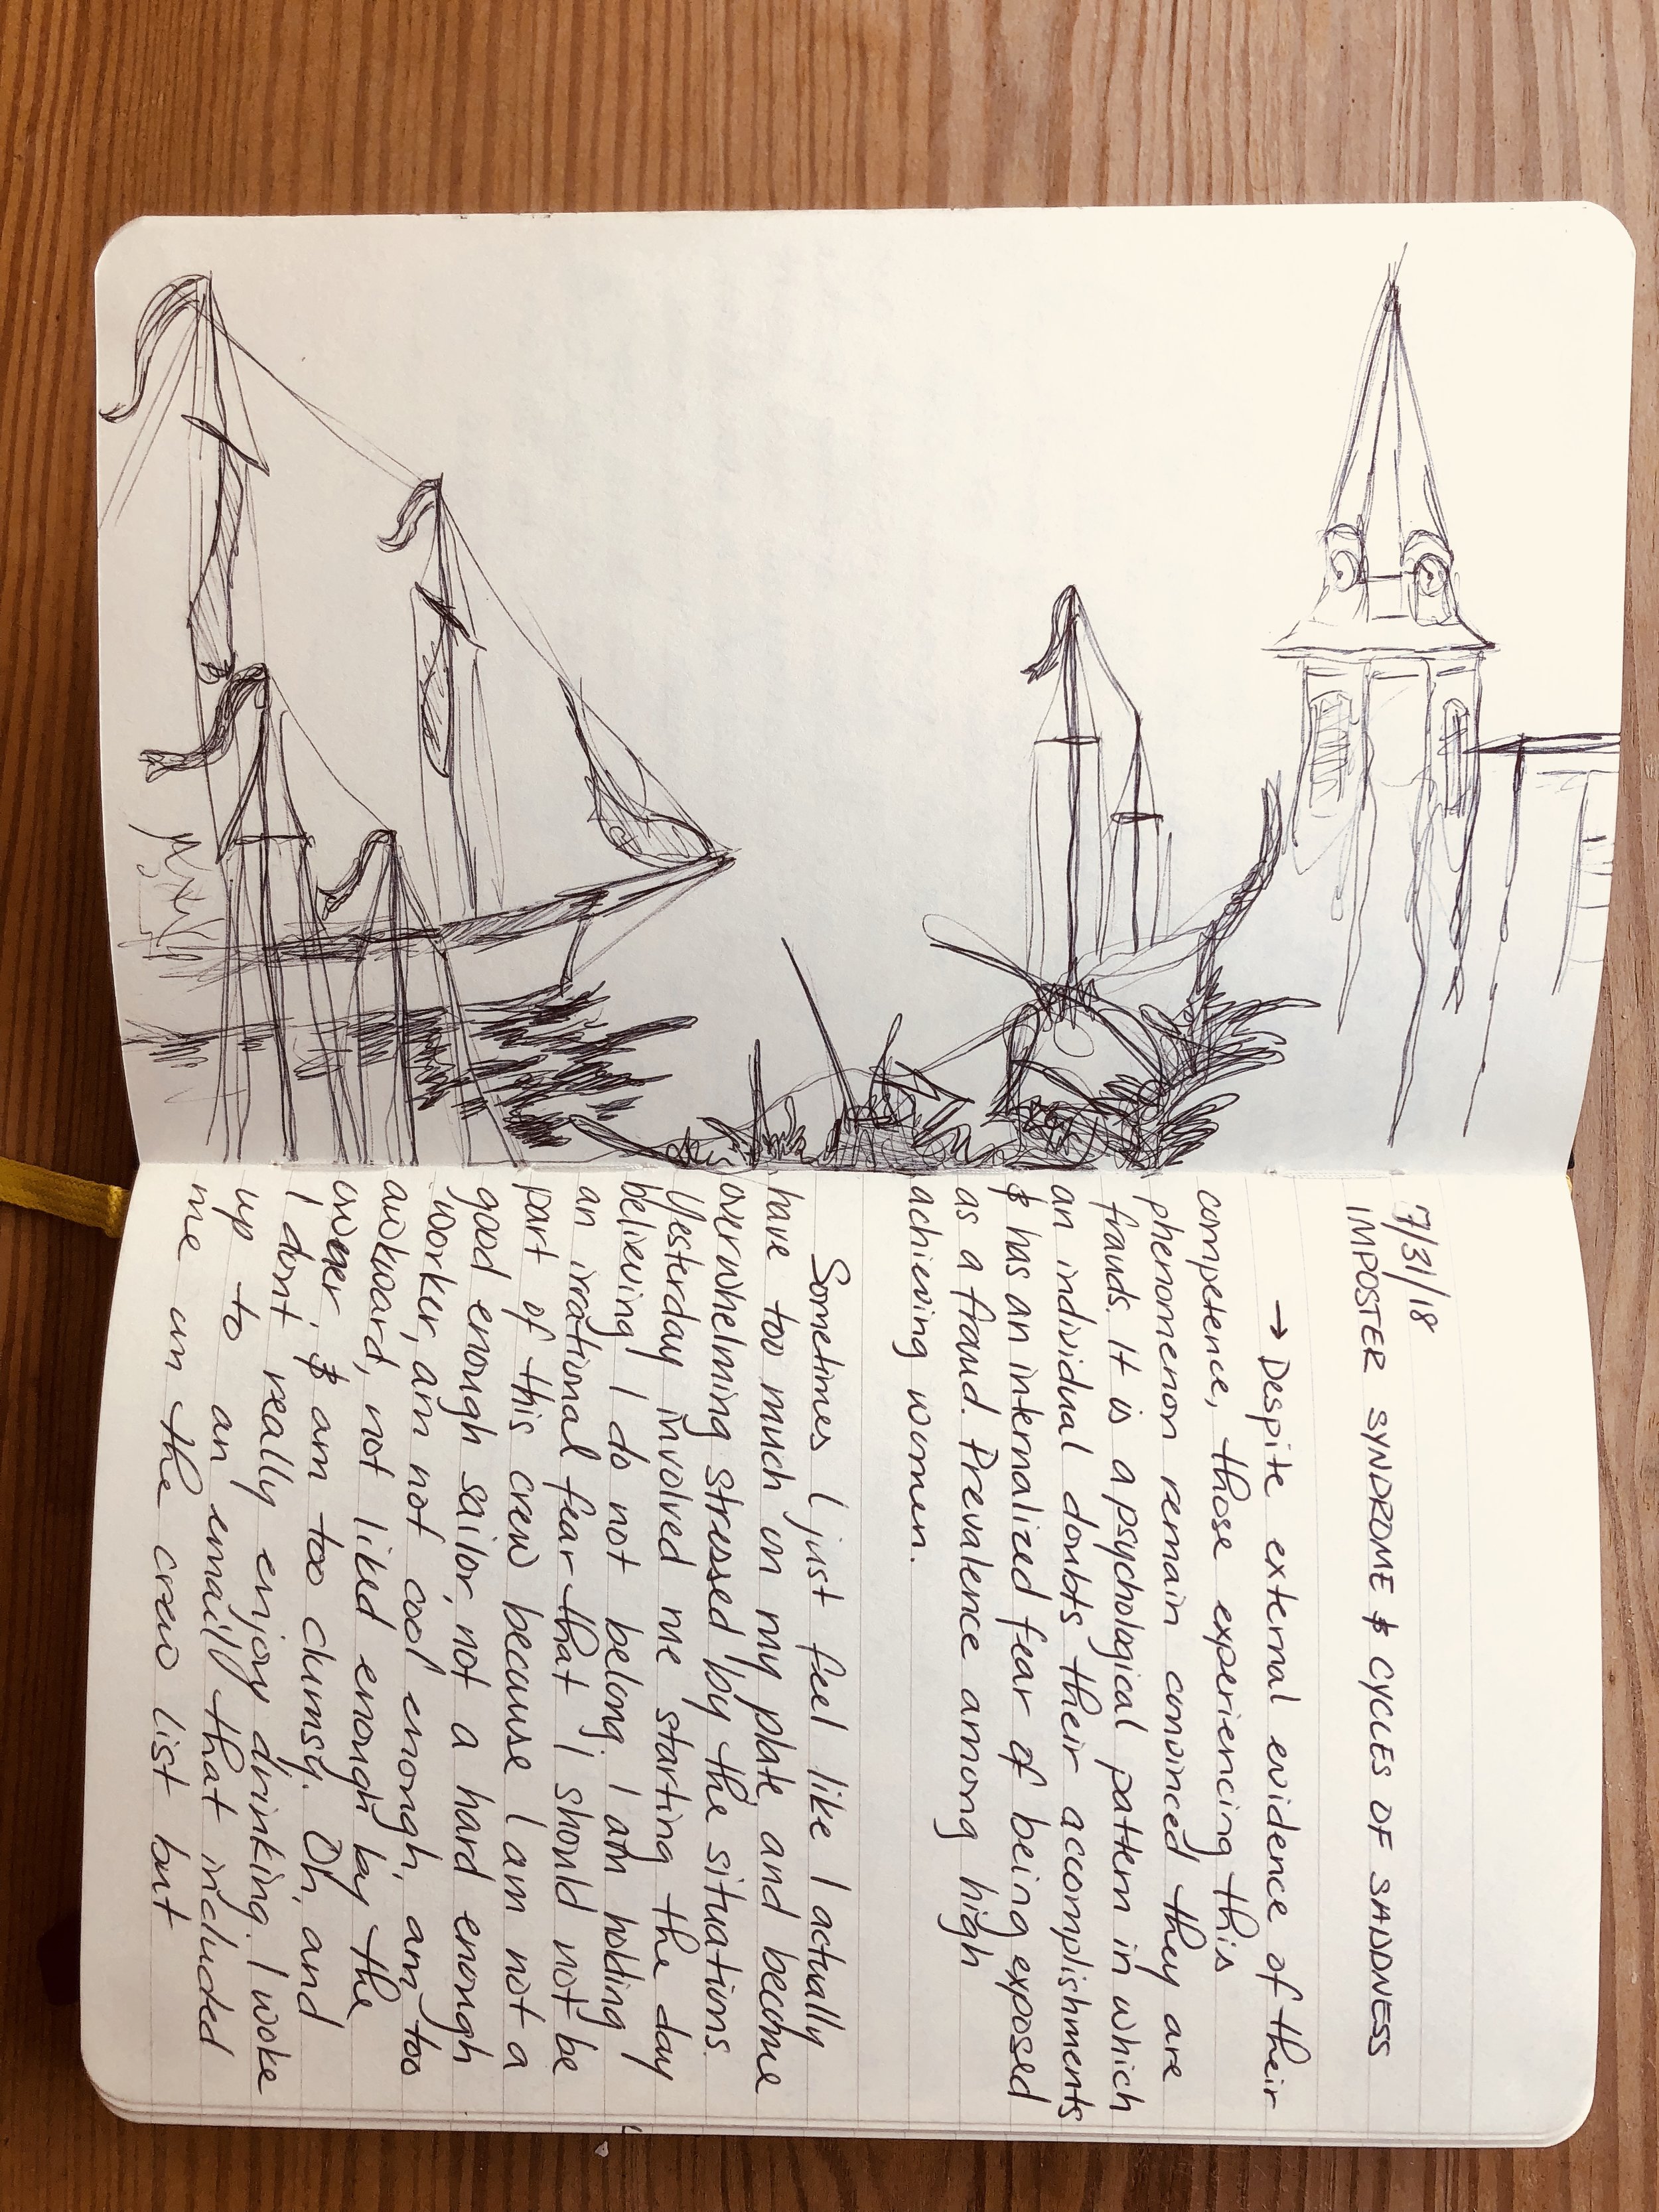 7/31/18
IMPOSTER SYNDROME & CYCLES OF SADDNESS
→ Despite external evidence of their
competence, those experiencing this
phenomenon remain convinced they are
frauds. It is a psychological pattern in which
an individual doubts their accomplishments
& has an internalized fear of being exposed
as a fraud. Prevalence among high
achieving women.
Sometimes I just feel like I actually
have too much on my plate and become
overwhelming stressed by the situations.
Yesterday involved me starting the day
believing I do not belong. I am holding
an irrational fear that I should not be
part of this crew because I am not a
good enough sailor, not a hard enough
worker, am not cool enough, am too
awkward, not liked enough by the
owner & am too clumsy. Oh, and
I dont really enjoy drinking. I woke
up to an email that included
me on the crew list but